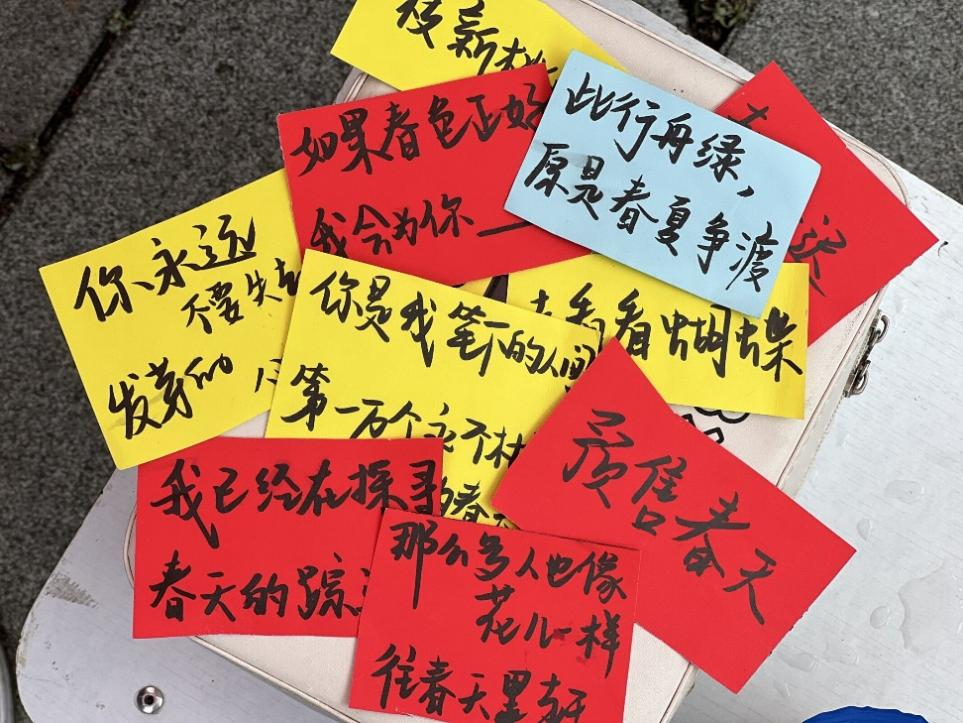 新
如果春色正好
我会为你
此行舟绿，
原是春夏争渡
迟
你永远
不要失去
发芽的
你是我笔下的人间
第一万个
春
去看看蝴蝶
预售春天
我已经在探寻
春天的踪
那么多人也像
花儿一样
往春天里赶